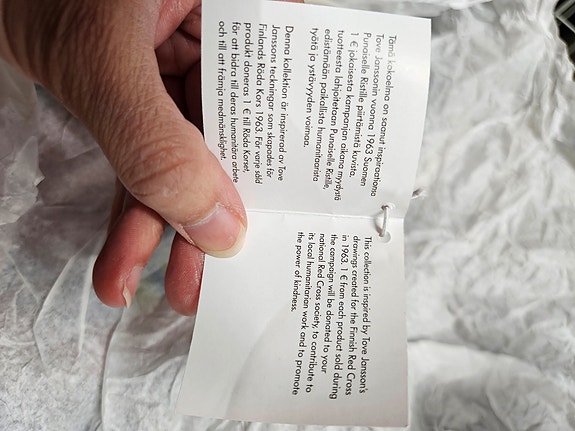 Tämä kokoelma on saanut inspiraationsa
Tove Janssonin vuonna 1963 Suomen
Punaiselle Ristille piirtämistä kuvista.
1 € jokaisesta kampanjan aikana myydystä
tuotteesta lahjoitetaan Punaiselle Ristille,
edistämään paikallista humanitaarista
työtä ja ystävyyden voimaa.
Denna kollektion är inspirerad av Tove
Janssons teckningar som skapades för
Finlands Röda Kors 1963. För varje såld
produkt doneras 1 € till Röda Korset,
för att bidra till deras humanitära arbete
och till att främja medmänsklighet.
This collection is inspired by Tove Jansson's
drawings created for the Finnish Red Cross
in 1963. 1 € from each product sold during
the campaign will be donated to your
national Red Cross society, to contribute to
its local humanitarian work and to promote
the power of kindness.